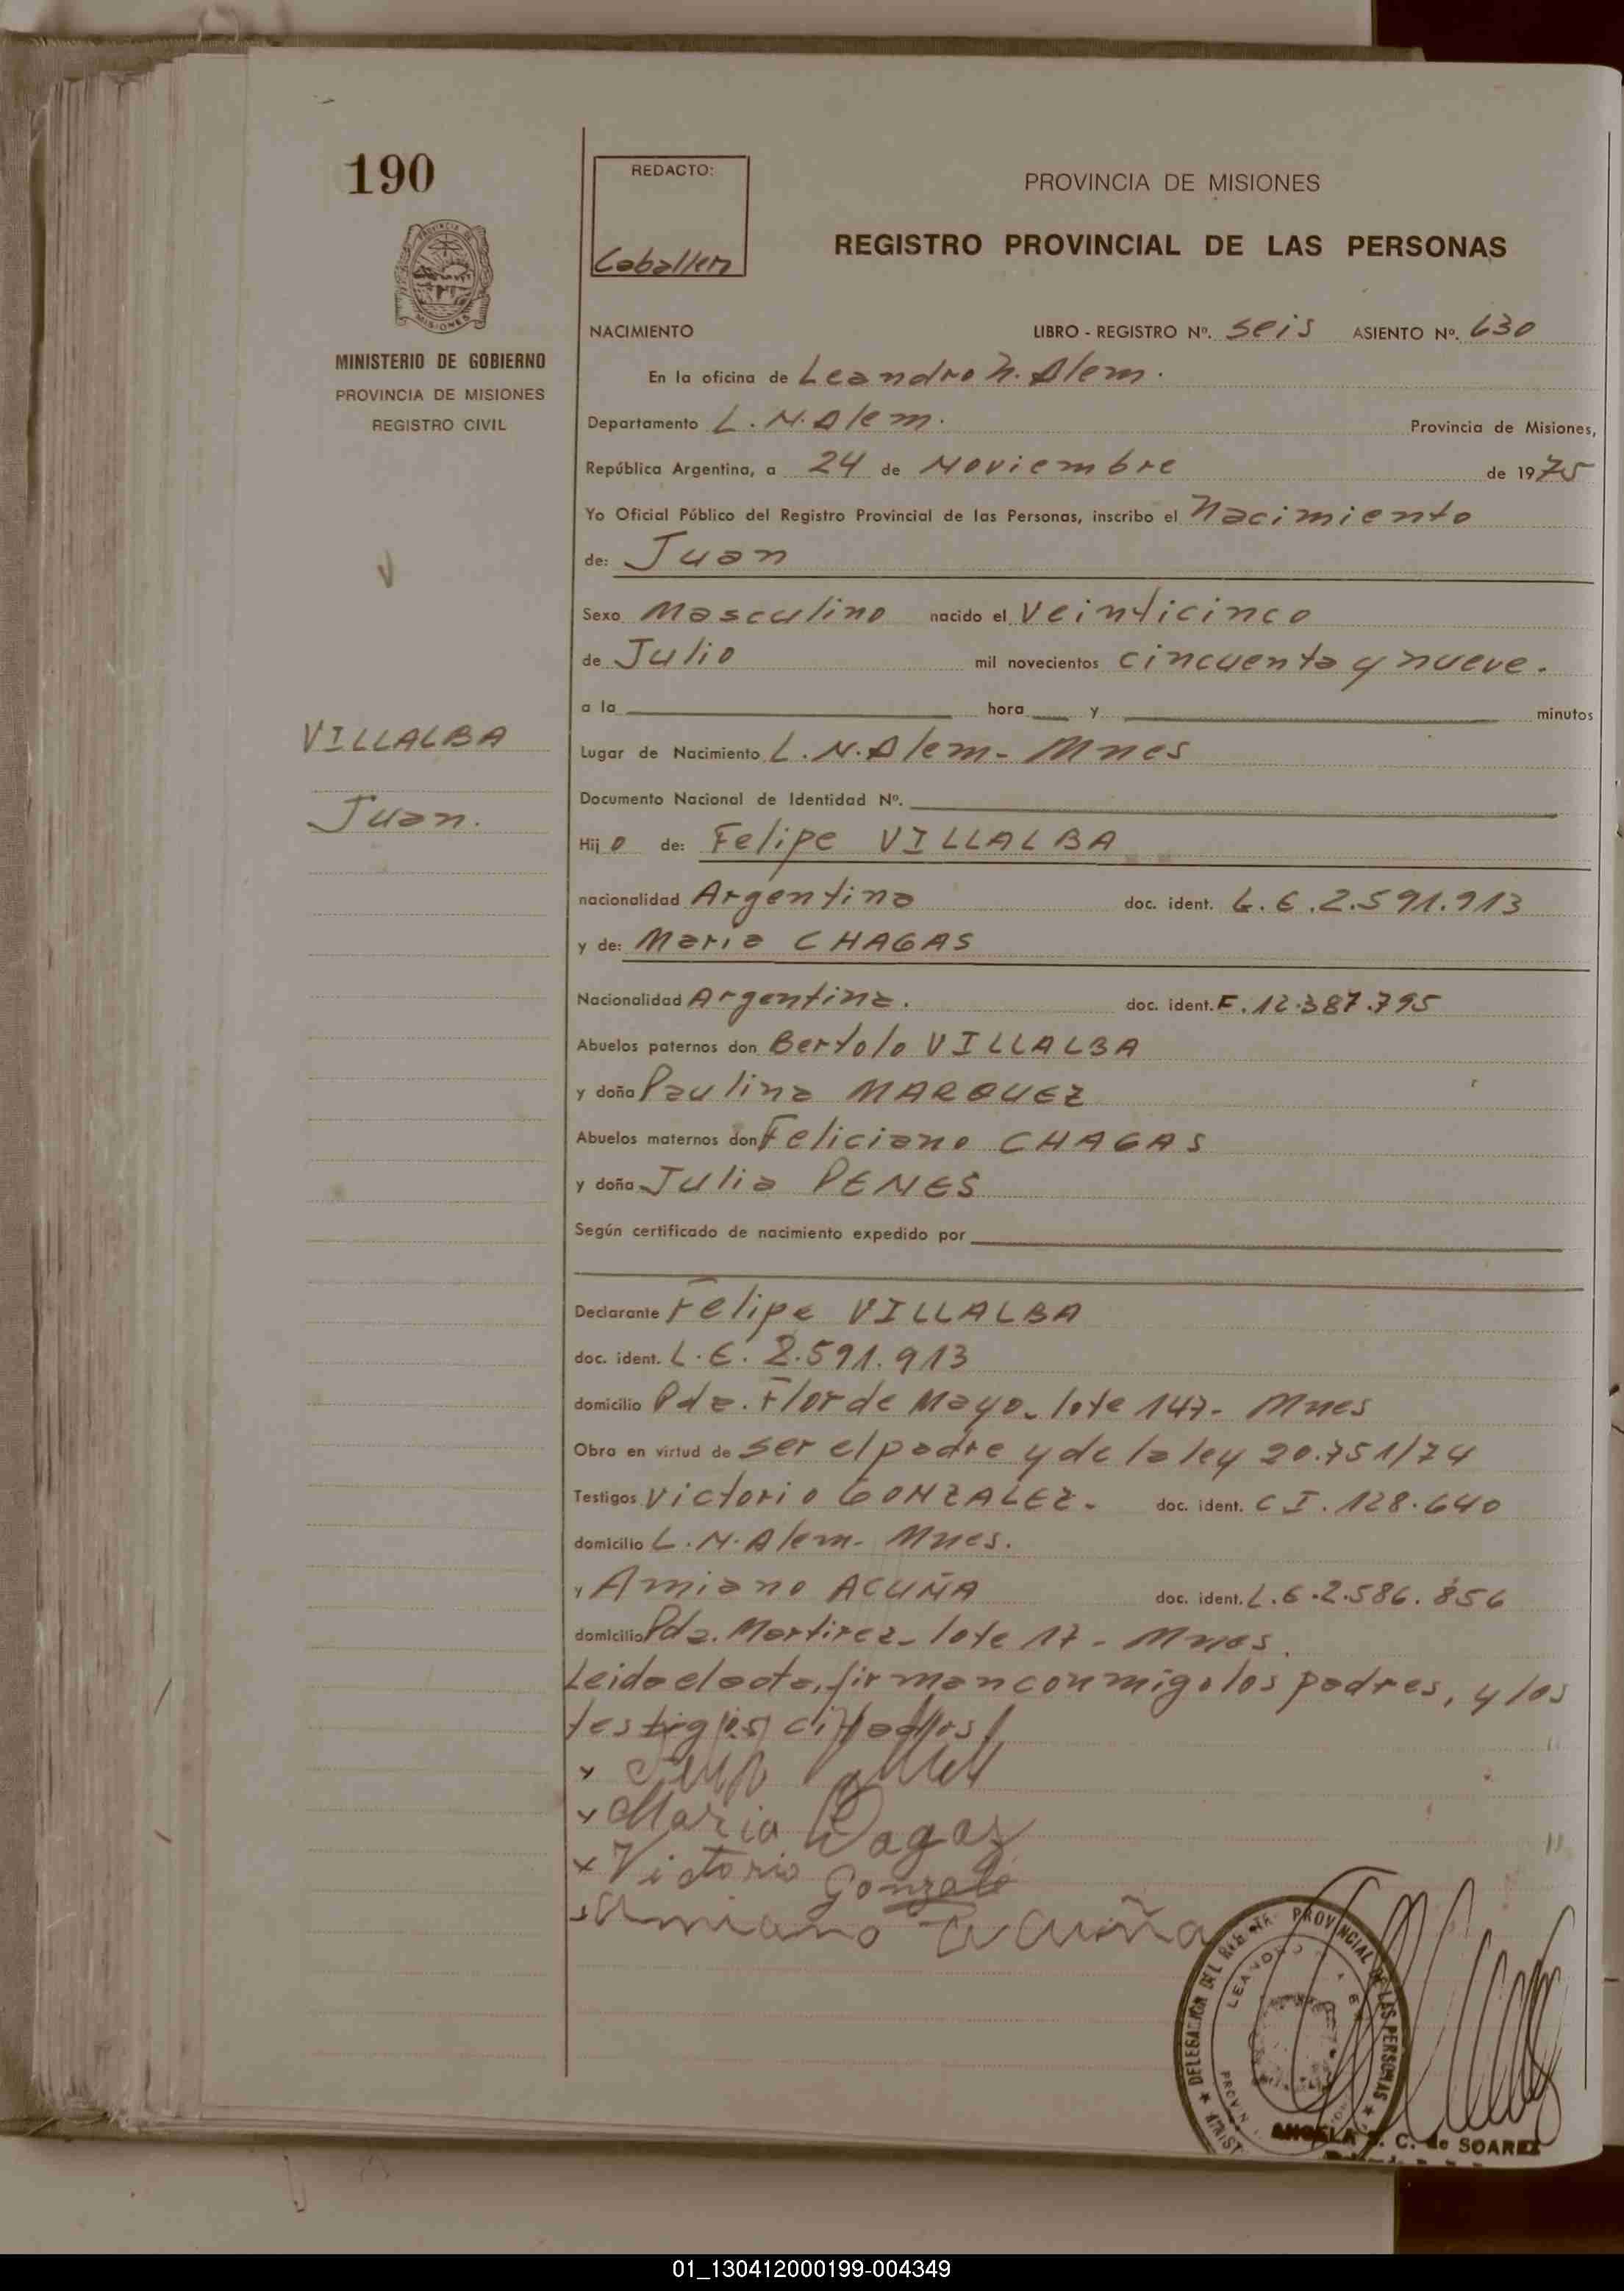 190
REDACTO:
PROVINCIA DE MISIONES
REGISTRO PROVINCIAL DE LAS PERSONAS
PROVINCIA DE
MISIONES
MINISTERIO DE GOBIERNO
PROVINCIA DE MISIONES
REGISTRO CIVIL
NACIMIENTO LIBRO - REGISTRO Nº. seis ASIENTO Nº. 630
En la oficina de Leandro N. Alem.
Departamento L. N. Alem. Provincia de Misiones,
República Argentina, a 24 de Noviembre de 1975
Yo Oficial Público del Registro Provincial de las Personas, inscribo el Nacimiento
de: Juan
Sexo Masculino nacido el Veinticinco
de Julio mil novecientos cincuenta y nueve.
a la hora y minutos
VILLALBA
Juan.
Lugar de Nacimiento L. N. Alem - Mnes
Documento Nacional de Identidad Nº.
Hijo de: Felipe VILLALBA
nacionalidad Argentino doc. ident. L.E. 2.591.913
y de: Maria CHAGAS
Nacionalidad Argentina. doc. ident. F. 12.387.795
Abuelos paternos don Bertolo VILLALBA
y doña Paulina MARQUEZ
Abuelos maternos don Feliciano CHAGAS
y doña Julia PENES
Según certificado de nacimiento expedido por
Declarante Felipe VILLALBA
doc. ident. L.E. 2.591.913
domicilio Pda. Flor de Mayo - lote 147 - Mnes
Obra en virtud de ser el padre y de la ley 20.751/74
Testigos Victorio GONZALEZ - doc. ident. C I. 128.640
domicilio L. N. Alem - Mnes.
y Amiano ACUÑA doc. ident. L.E. 2.586.856
domicilio Pda. Martirez - lote 17 - Mnes.
Leida el acta, firman conmigo los padres, y los
testigos citados
Maria
Victorio Gonzale
Amiano Acuña
DELEGACIÓN DEL REGISTR PROVINCIAL DE LAS PERSONAS
LEANDRO
ANGELA C. de SOAREZ
01_130412000199-004349